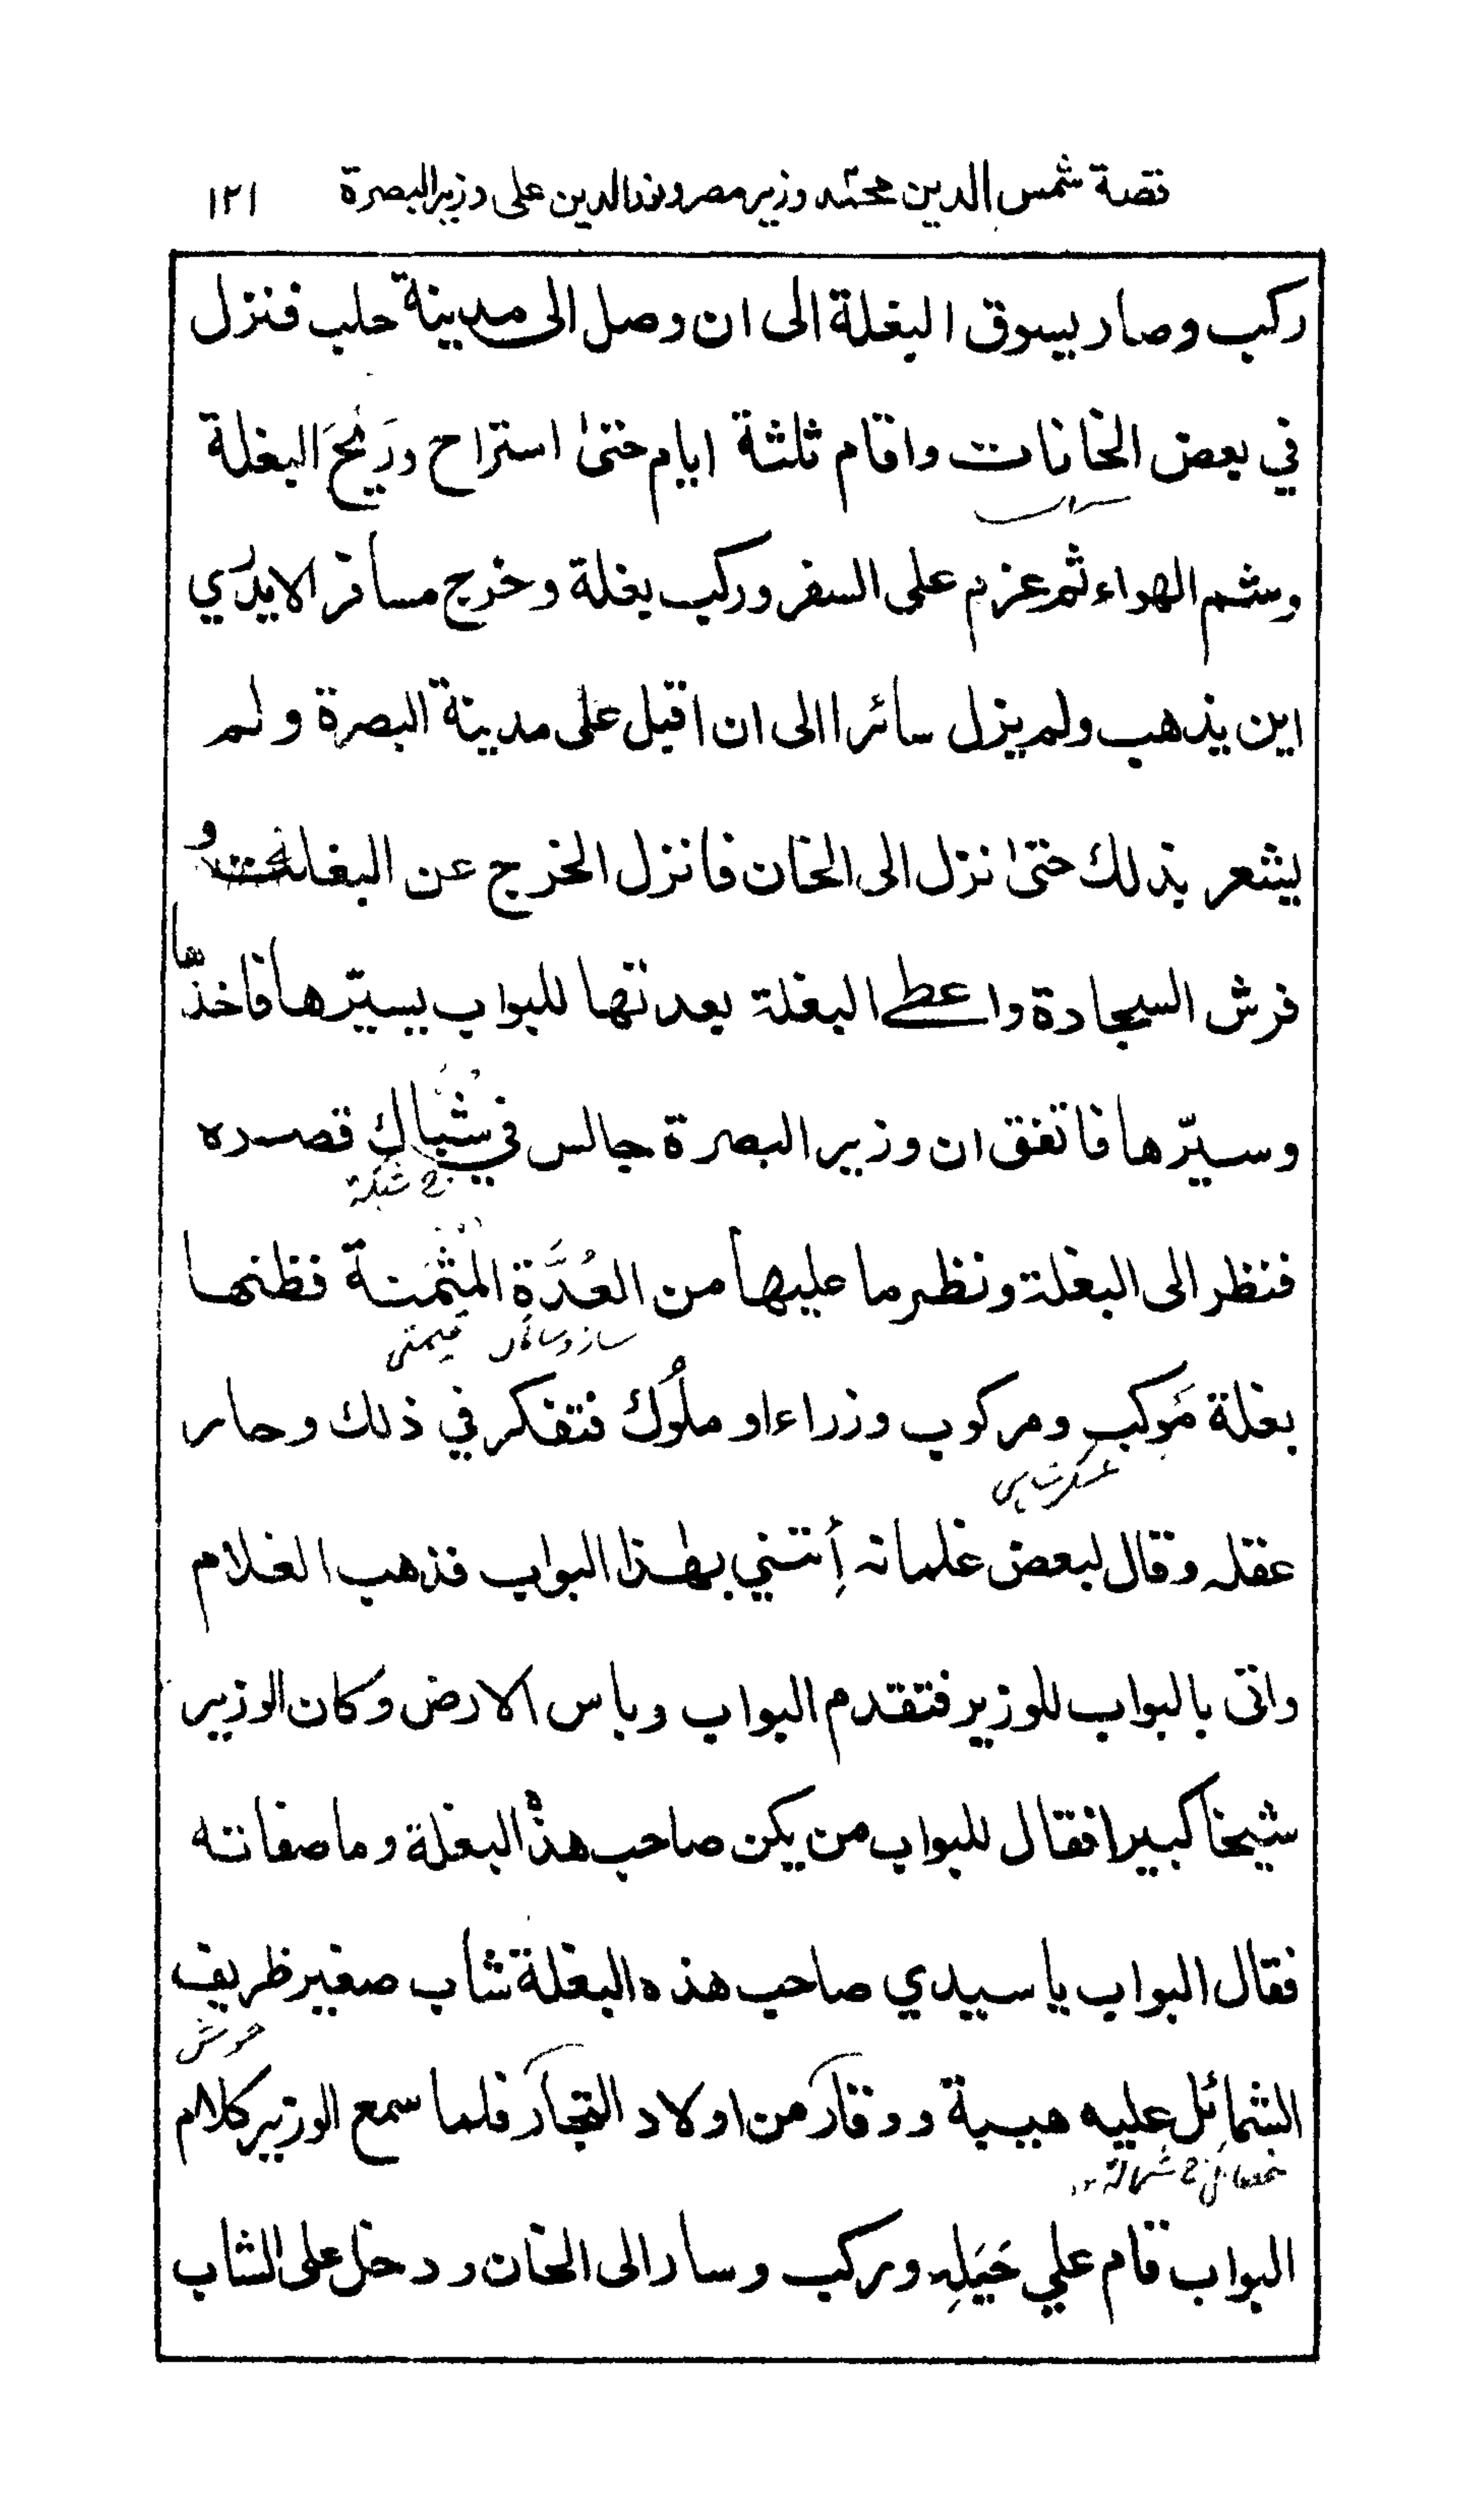 قصة شمس الدين محمّد وزير مصر ونور الدين على وزير البصرة ١٢١
ركب وصار يسوق البغلة الى ان وصل الى مدينة حلب فنزل
في بعض الخانات واقام ثلثة ايام حتىٰ استراح ورَيَّحَ البغلة
وشم الهواء ثم عزم على السفر وركب بغلة وخرج مسافر الا يدري
اين يذهب ولم يزل سائرا الى ان اقبل على مدينة البصرة ولم
يشعر بذلك حتىٰ نزل الى الخان فانزل الخرج عن البغلة و
فرش السجادة واعطى البغلة بعدتها للبواب يسيّرها فاخذها
وسيّرها فاتفق ان وزير البصرة جالس في شُبَّاك قصره
جمع شبكة
فنظر الى البغلة ونظر ما عليها من العُدَّة المثمَنة فظنها
ساز وسامان قیمتی
بغلة مَوكبِ ومركوب وزراء او ملُوك فتفكر في ذلك وحار
عقله وقال لبعض غلمانه أِتني بهذا البواب فذهب الغلام
واتى بالبواب للوزير فتقدم البواب وباس الارض وكان الوزير
شيخا كبيرا فقال للبواب من يكن صاحب هذه البغلة وما صفاته
فقال البواب يا سيدي صاحب هذه البغلة شاب صغير ظريف
الشمائل عليه هيبة ووقار من اولاد التجار فلما سمع الوزير كلام
البواب قام علي حَيَلِه وركب وسار الى الخان ودخل على الشاب